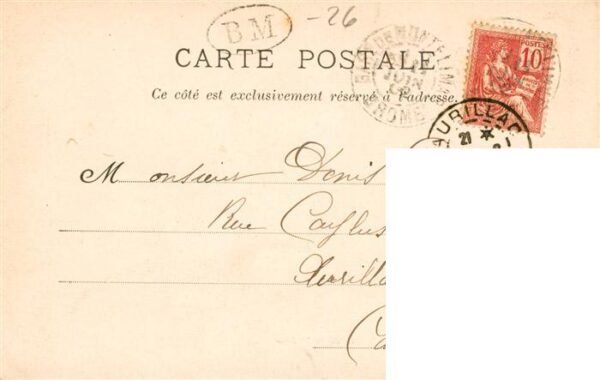 BM
-26
CARTE POSTALE
Ce côté est exclusivement réservé à l'adresse.
POSTES
10
JUIN
DROME
AURILLAC
21
Monsieur Denis
Rue Caylus
Aurilla
(Ca